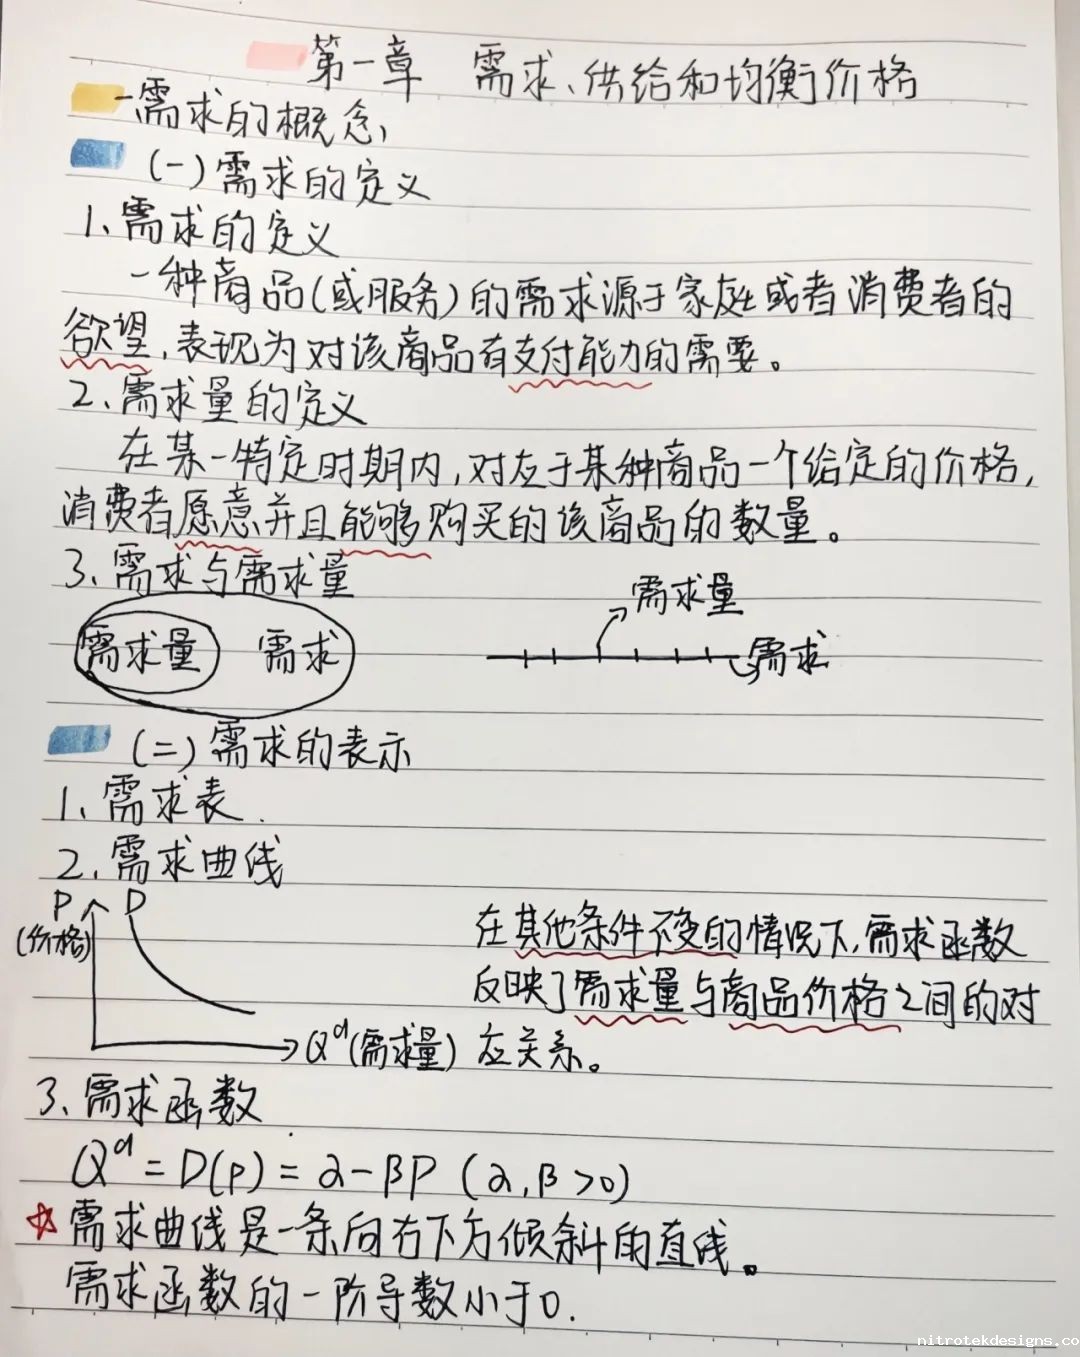 第一章 需求、供给和均衡价格
一、需求的概念、
(一)需求的定义
1、需求的定义
一种商品(或服务)的需求源于家庭或者消费者的
欲望,表现为对该商品有支付能力的需要。
2、需求量的定义
在某一特定时期内,对应于某种商品一个给定的价格,
消费者愿意并且能够购买的该商品的数量。
3、需求与需求量
需求量 需求
需求量
需求
(二)需求的表示
1、需求表.
2、需求曲线
P D
(价格)
Q^d(需求量)
在其他条件不变的情况下,需求函数
反映了需求量与商品价格之间的对
应关系。
3、需求函数
Q^d = D(p) = α-βP (α,β>0)
☆需求曲线是一条向右下方倾斜的直线。
需求函数的一阶导数小于0.
nitrotekdesigns.co